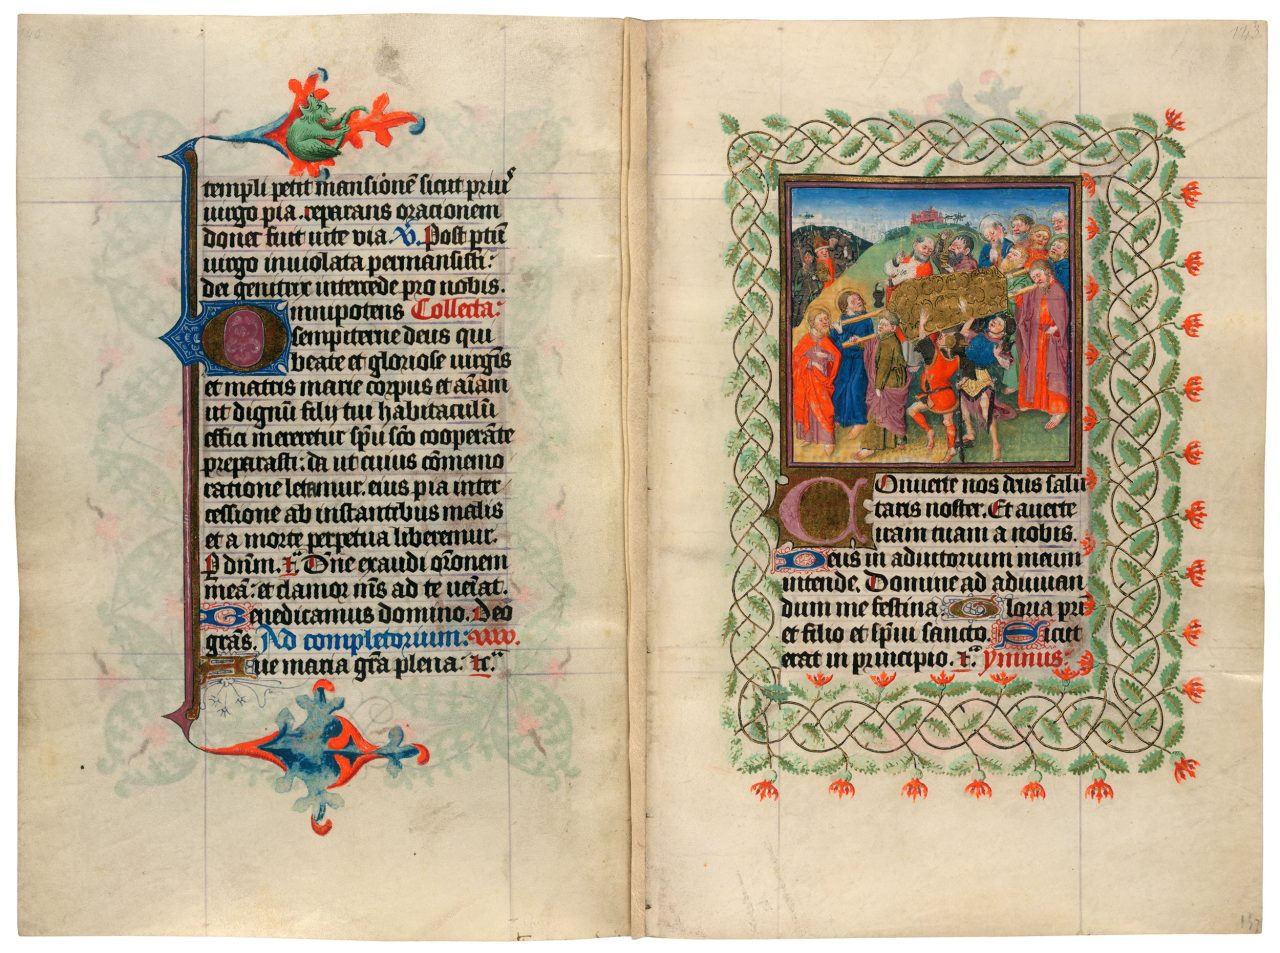 templi petit mansionē sicut prius
uirgo pia. reparans orationem
donec fuit uite via. V. Post partū
uirgo inuiolata permansisti:
dei genitrix intercede pro nobis.
Omnipotens Collecta:
sempiterne deus qui
beate et gloriose uirgīs
et matris marie corpus et aīam
ut dignū filij tui habitaculū
effici mereretur spū scō cooperāte
preparasti: da ut cuius cōmemo
ratione letamur. eius pia inter
cessione ab instantibus malis
et a morte perpetua liberemur.
P dnm̄. Dn̄e exaudi orōnem
meā: et clamor m̄s ad te ueīat.
Benedicamus domino. Deo
grās. Ad completorium:
Aue maria gr̄a plena. tc.
143
Conuerte nos deus salu
taris noster. Et auerte
iram tuam a nobis.
Deus in adiutorium meum
intende. Domine ad adiuuan
dum me festina Gloria pri
et filio et spūi sancto. Sicut
erat in principio. tc. ymnus:
137